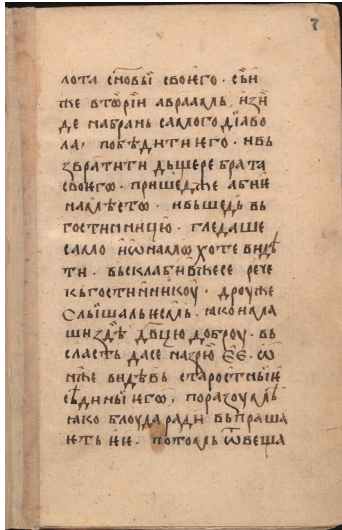 7
лота сн҃овы своѥго · сьи
же вторїи авраамь изꙑ
де на брань самого дїаво
ла · побѣдити ѥго · и вь
звратити дьщере брата
своѥго · пришедже абиѥ
на мѣсто · и вьшедь вь
гостинницꙋ · гледаше
само и онамо хоте видѣ
ти · вьсклабивжесе рече
кь гостинникоу · дроуже
слышаль ѥсмь ꙗко имаа
ши здѣ дв҃цꙋ доброу · вь
сласть да се назрю ѥѥ · ѡ
нже видѣвь старостныѥ
сѣдины ѥго · поразоумѣ
ꙗко блоуда ради вьпраша
ѥть ѥѥ · потомь ѿвеща